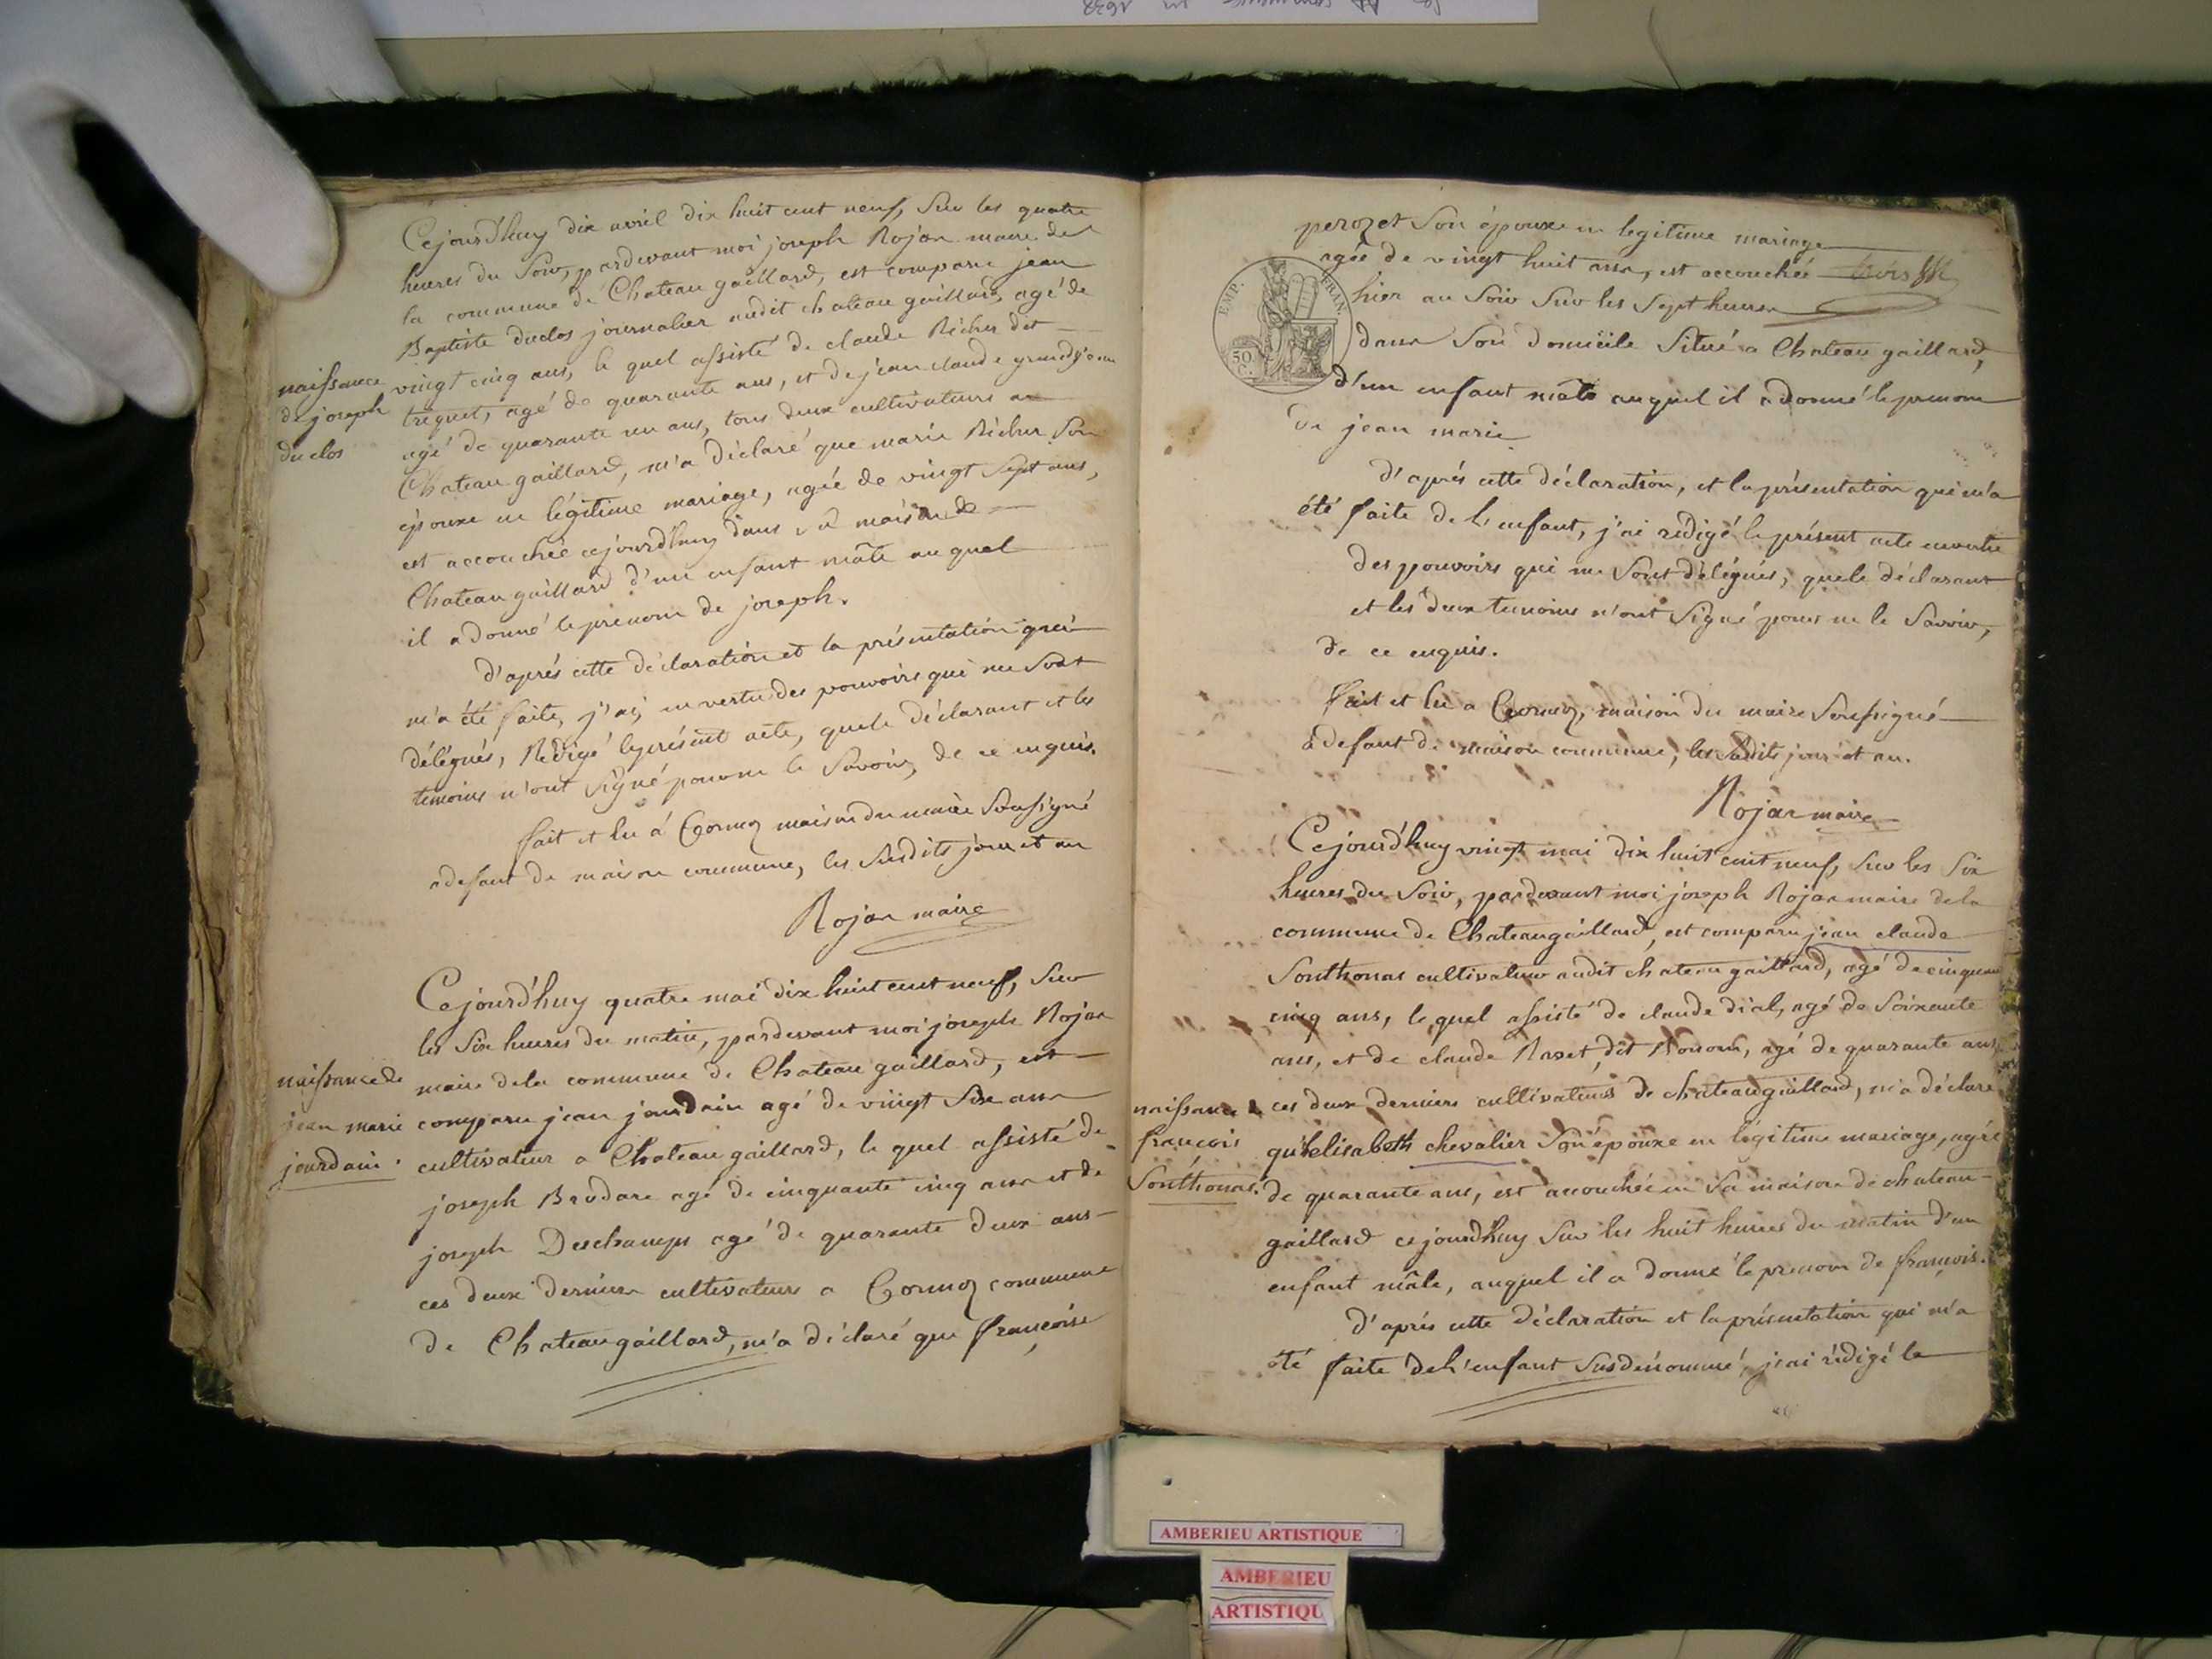 Cejourd'huy dix avril dix huit cent neuf, Sur les quatre
heures du Soir, pardevant moi joseph Rojan maire de
la commune de Chateau gaillard, est comparu jean
Baptiste duclos journalier audit chateau gaillard, agé de
vingt cinq ans, le quel assisté de claude Richer dit
triquet, agé de quarante ans, et de jean claude grandjean
agé de quarante un ans, tous deux cultivateurs a
Chateau gaillard, m'a déclaré que marie Richer Son
épouse en légitime mariage, agée de vingt Sept ans,
est accouchée cejourdhuy dans Sa maison de
Chateau gaillard d'un enfant mâle au quel
il a donné le prenom de joseph.
naissance
de joseph
duclos
d'après cette déclaration et la présentation qui
m'a été faite, j'ai, en vertu des pouvoirs qui me Sont
délégués, Rédigé le présent acte, que le déclarant et les
temoins n'ont Signé pour ne le Savoir, de ce enquis.
fait et lu à Cormoz maison du maire Soussigné
a defaut de maison commune, les Susdits jour et an
Rojan maire
Cejourd'huy quatre mai dix huit cent neuf, Sur
les Six heures du matin, pardevant moi joseph Rojan
maire dela commune de Chateau gaillard, est
comparu jean jourdain agé de vingt Six ans
cultivateur a Chateau gaillard, le quel assisté de
joseph Brodare agé de cinquante cinq ans et de
joseph Deschamps agé de quarante deux ans
ces deux derniers cultivateurs a Cormoz commune
de Chateau gaillard, m'a déclaré que françoise
naissance de
jean marie
jourdain.
perozet Son épouse en legitime mariage
agée de vingt huit ans, est accouchée
hier au Soir Sur les Sept heures
EMP. FRAN.
50 C.
dans Son domicile Situé a Chateau gaillard,
d'un enfant mâle auquel il a donné le prenom
de jean marie
d'après cette déclaration, et la présentation qui m'a
été faite de l'enfant, j'ai rédigé le présent acte en vertu
des pouvoirs qui me Sont délégués, que le déclarant
et les deux temoins n'ont Signé pour ne le Savoir,
de ce enquis.
fait et lu a Cormoz, maison du maire Soussigné
a defaut de maison commune, les Susdits jour et an.
Rojan maire
Cejourd'huy vingt mai dix huit cent neuf, Sur les Six
heures du Soir, pardevant moi joseph Rojan maire de la
commune de Chateaugaillard, est comparu jean claude
Sonthonas cultivateur audit chateau gaillard, agé de cinquante
cinq ans, le quel assisté de claude dial, agé de Soixante
ans, et de claude Ravet, dit agé de quarante ans
ces deux derniers cultivateurs de chateaugaillard, m'a déclaré
qu'helisabeth chevalier Son épouse en légitime mariage, agée
de quarante ans, est accouchée en Sa maison de chateau-
gaillard cejourdhuy Sur les huit heures du matin d'un
enfant mâle, auquel il a donné le prenom de françois.
naissance de
françois
Sonthonas.
D'après cette déclaration et la présentation qui m'a
été faite del'enfant Susdénommé, j'ai rédigé le
AMBERIEU ARTISTIQUE
AMBERIEU
ARTISTIQU